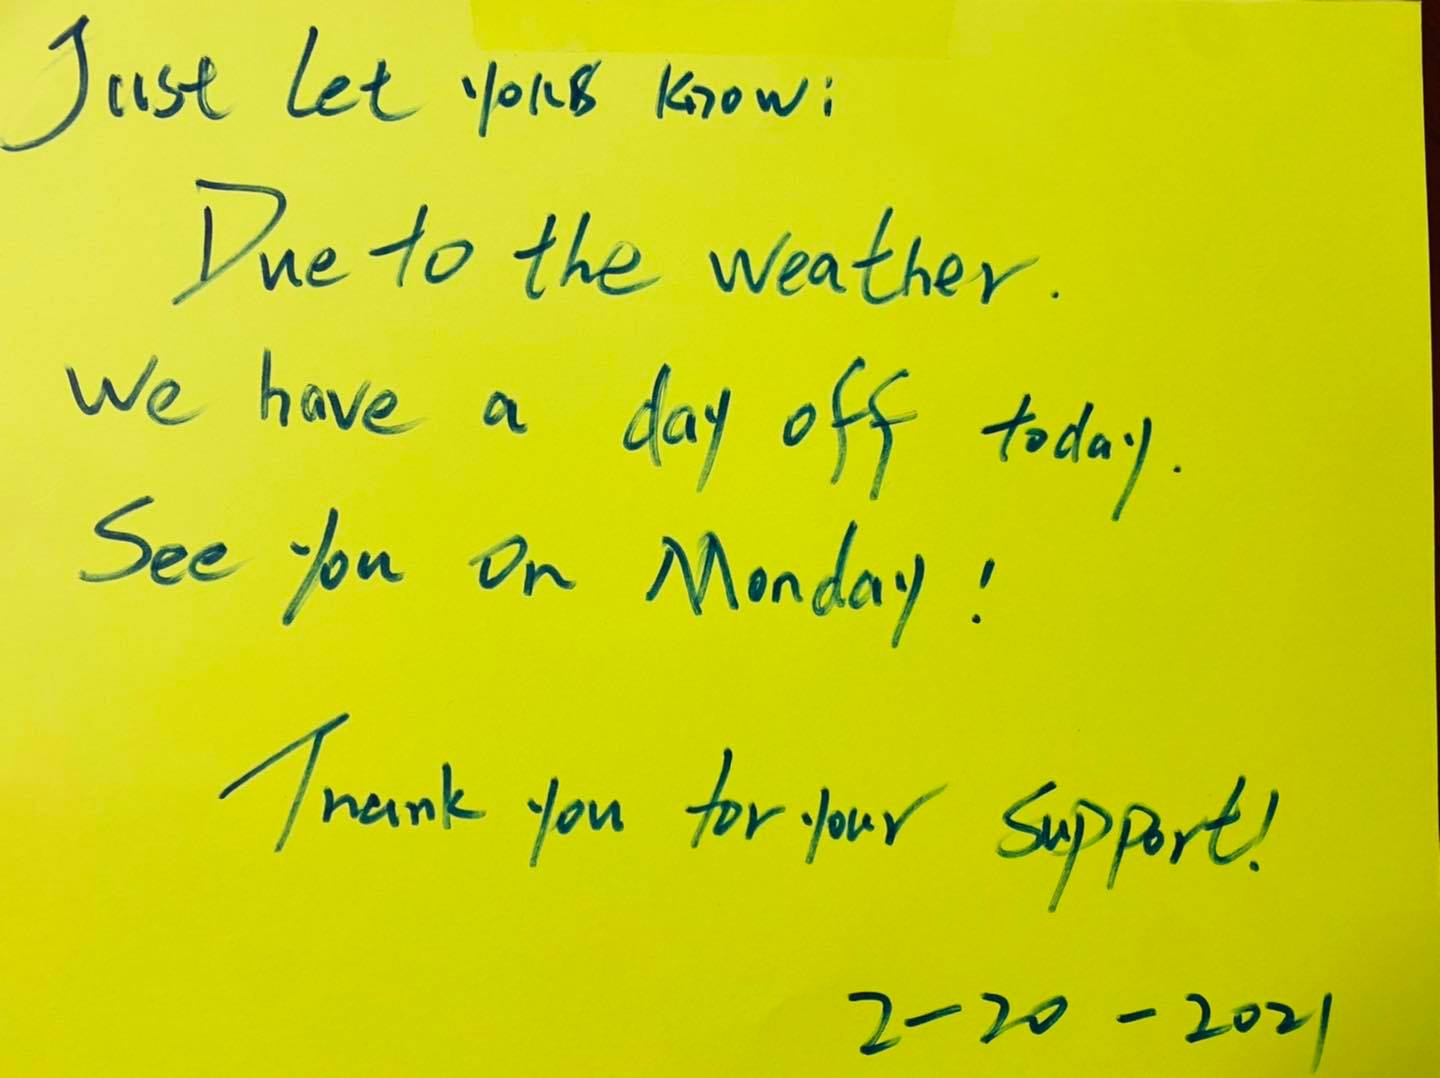 Just Let yous know:
Due to the weather.
We have a day off today.
See you on Monday!
Thank you for your support!
2-20-2021